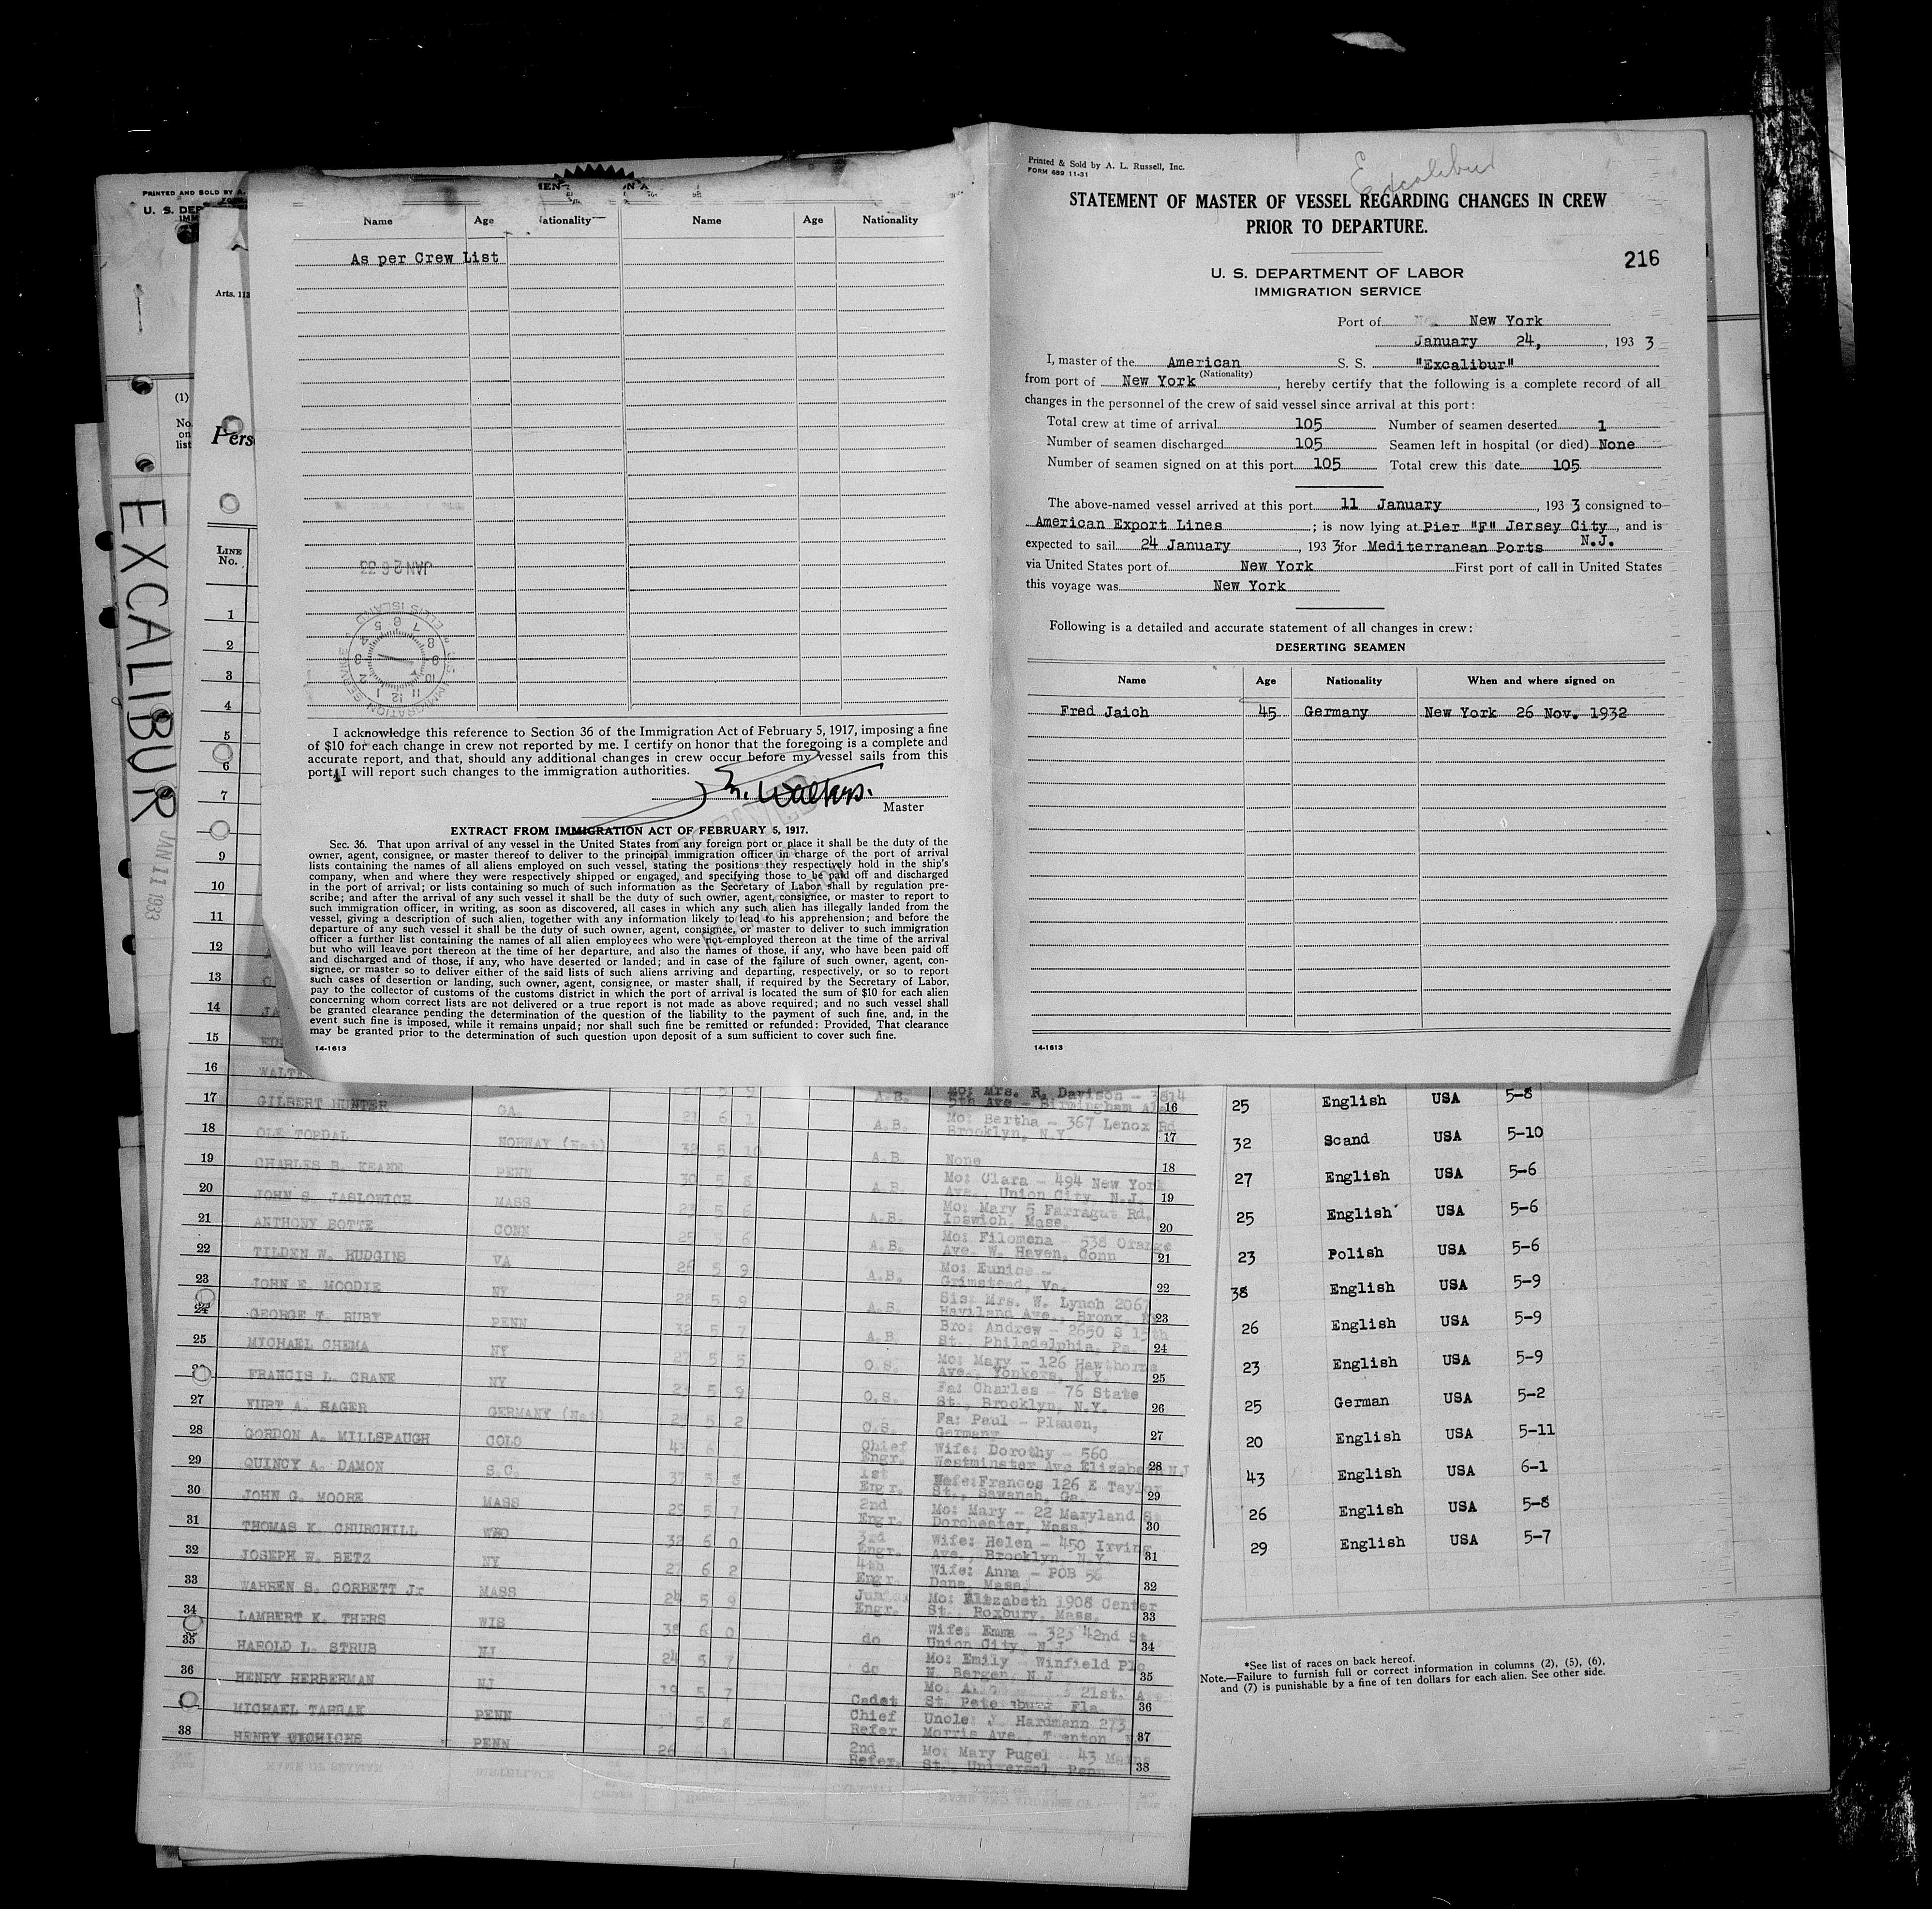 PRINTED AND SOLD BY A.
U. S. DEP
EXCALIBUR
JAN 11 1933
(1)
No.
on
list
Arts. 113
Pers
LINE
No.
Name Age Nationality Name Age Nationality
As per Crew List
JAN 26 33
I acknowledge this reference to Section 36 of the Immigration Act of February 5, 1917, imposing a fine
of $10 for each change in crew not reported by me. I certify on honor that the foregoing is a complete and
accurate report, and that, should any additional changes in crew occur before my vessel sails from this
port, I will report such changes to the immigration authorities.
Master
EXTRACT FROM IMMIGRATION ACT OF FEBRUARY 5, 1917.
Sec. 36. That upon arrival of any vessel in the United States from any foreign port or place it shall be the duty of the
owner, agent, consignee, or master thereof to deliver to the principal immigration officer in charge of the port of arrival
lists containing the names of all aliens employed on such vessel, stating the positions they respectively hold in the ship's
company, when and where they were respectively shipped or engaged, and specifying those to be paid off and discharged
in the port of arrival; or lists containing so much of such information as the Secretary of Labor shall by regulation pre-
scribe; and after the arrival of any such vessel it shall be the duty of such owner, agent, consignee, or master to report to
such immigration officer, in writing, as soon as discovered, all cases in which any such alien has illegally landed from the
vessel, giving a description of such alien, together with any information likely to lead to his apprehension; and before the
departure of any such vessel it shall be the duty of such owner, agent, consignee, or master to deliver to such immigration
officer a further list containing the names of all alien employees who were not employed thereon at the time of the arrival
but who will leave port thereon at the time of her departure, and also the names of those, if any, who have been paid off
and discharged and of those, if any, who have deserted or landed; and in case of the failure of such owner, agent, con-
signee, or master so to deliver either of the said lists of such aliens arriving and departing, respectively, or so to report
such cases of desertion or landing, such owner, agent, consignee, or master shall, if required by the Secretary of Labor,
pay to the collector of customs of the customs district in which the port of arrival is located the sum of $10 for each alien
concerning whom correct lists are not delivered or a true report is not made as above required; and no such vessel shall
be granted clearance pending the determination of the question of the liability to the payment of such fine, and, in the
event such fine is imposed, while it remains unpaid; nor shall such fine be remitted or refunded: Provided, That clearance
may be granted prior to the determination of such question upon deposit of a sum sufficient to cover such fine.
14-1613
Printed & Sold by A. L. Russell, Inc.
FORM 689 11-31
Excalibur
STATEMENT OF MASTER OF VESSEL REGARDING CHANGES IN CREW
PRIOR TO DEPARTURE.
216
U. S. DEPARTMENT OF LABOR
IMMIGRATION SERVICE
Port of New York
January 24, , 193 3
I, master of the American S. S. "Excalibur"
(Nationality)
from port of New York , hereby certify that the following is a complete record of all
changes in the personnel of the crew of said vessel since arrival at this port:
Total crew at time of arrival 105 Number of seamen deserted 1
Number of seamen discharged 105 Seamen left in hospital (or died) None
Number of seamen signed on at this port 105 Total crew this date 105
The above-named vessel arrived at this port 11 January , 193 3 consigned to
American Export Lines ; is now lying at Pier "F" Jersey City , and is
N.J.
expected to sail 24 January , 193 3 for Mediterranean Ports
via United States port of New York First port of call in United States
this voyage was New York
Following is a detailed and accurate statement of all changes in crew:
DESERTING SEAMEN
Name Age Nationality When and where signed on
Fred Jaich 45 Germany New York 26 Nov. 1932
14-1613
1
2
3
4
5
6
7
9
10
11
12
13
14
15
16 Mo: Mrs. R. Davison - 3814
A.B. 5th Ave - Birmingham 16
17 GILBERT HUNTER GA. 21 6 1 A.B. Mo: Bertha - 367 Lenox Rd
Brooklyn, N.Y. 17
18 OLE TORDAL NORWAY (Nat) 38 5 10 A.B. None 18
19 CHARLES B. KEANE PENN 30 5 8 A.B. Mo: Clara - 494 New York
Ave., Union City, N.J. 19
20 JOHN S. JASLOWICH MASS 23 5 6 A.B. Mo: Mary 5 Farragut Rd.
Ipswich, Mass. 20
21 ANTHONY BOTTE CONN 25 5 6 A.B. Mo: Filomena - 538 Orange
Ave. W. Haven, Conn 21
22 TILDEN W. HUDGINS VA 26 5 9 A.B. Mo: Eunice -
Grimstead, Va. 22
23 JOHN E. MOODIE NY 28 5 9 A.B. Sis: Mrs. W. Lynch 2067
Haviland Ave., Bronx, 23
24 GEORGE T. RUBY PENN 32 5 7 A.B. Bro: Andrew - 2650 S 15th
St., Philadelphia, Pa. 24
25 MICHAEL CHEMA NY 27 5 5 O.S. Mo: Mary - 126 Hawthorne
Ave., Yonkers, N.Y. 25
FRANCIS L. CRANE NY 5 9 O.S. Fa: Charles - 76 State
St., Brooklyn, N.Y. 26
27 KURT A. HAGER GERMANY (Nat) 5 2 O.S. Fa: Paul - Plauen,
Germany 27
28 GORDON A. MILLSPAUGH COLO 43 6 Chief Engr. Wife: Dorothy - 560
Westminster Ave Elizabeth NJ 28
29 QUINCY A. DAMON S.C. 37 5 8 1st Engr. Wife: Frances 126 E Taylor
St., Savanah, Ga. 29
30 JOHN G. MOORE MASS 29 5 7 2nd Engr. Mo: Mary - 22 Maryland St
Dorchester, Mass. 30
31 THOMAS K. CHURCHILL 32 6 0 3rd Engr. Wife: Helen - 450 Irving
Ave., Brooklyn, N.Y. 31
32 JOSEPH W. BETZ NY 27 6 2 4th Engr. Wife: Anna - POB 56
Dana, Mass. 32
33 WARREN S. CORBETT Jr MASS 24 5 9 Junior Engr. Mo: Elizabeth 1908 Center
St. Roxbury, Mass. 33
34 LAMBERT K. THERS WIS 38 6 0 do Wife: Emma - 323 42nd St
Union City, N.J. 34
35 HAROLD L. STRUB NJ 24 5 7 do Mo: Emily - Winfield
N. Bergen, N.J. 35
36 HENRY HERBERMAN NJ 19 5 7 Cadet 21st.
St. Petersburg Fla. 36
MICHAEL TARRAK PENN 5 8 Chief Refer Uncle: J. Hardmann 273
Morris Ave., Trenton 37
38 HENRY PENN 26 2nd Refer. Mo: Mary Pugel 43 Main
St., Universal, Penn 38
25 English USA 5-8
32 Scand USA 5-10
27 English USA 5-6
25 English USA 5-6
23 Polish USA 5-6
38 English USA 5-9
26 English USA 5-9
23 English USA 5-9
25 German USA 5-2
20 English USA 5-11
43 English USA 6-1
26 English USA 5-8
29 English USA 5-7
*See list of races on back hereof.
Note.—Failure to furnish full or correct information in columns (2), (5), (6),
and (7) is punishable by a fine of ten dollars for each alien. See other side.